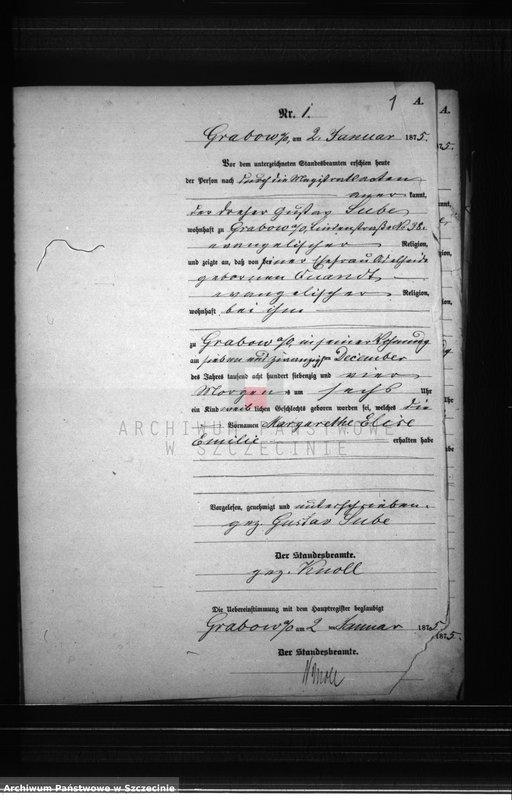 1
A.
Nr. 1.
Grabow a/O, am 2. Januar 1875.
Vor dem unterzeichneten Standesbeamten erschien heute
der Persönlichkeit nach durch die Magistratsacten
kannt,
Gustav Sube
wohnhaft zu Grabow a/O, Lindenstraße No 38.
evangelischer Religion,
und zeigte an, daß von seiner Ehefrau Adelheide
gebornen Quandt
evangelischer Religion,
wohnhaft bei ihm
zu Grabow a/O, in seiner Wohnung
am sieben und zwanzigsten December
des Jahres tausend acht hundert siebenzig und vier
Morgens um sechs Uhr
ein Kind weiblichen Geschlechts geboren worden sei, welches die
Vornamen Margarethe Elise
Emilie erhalten habe
Vorgelesen, genehmigt und unterschrieben.
gez. Gustav Sube
Der Standesbeamte.
gez. Knoll
Die Uebereinstimmung mit dem Hauptregister beglaubigt
Grabow a/O am 2 ten Januar 1875.
Der Standesbeamte.
Knoll
A.
75.
1875.
ARCHIWUM PAŃSTWOWE
W SZCZECINIE
Archiwum Państwowe w Szczecinie
Archiwum Państwowe w Szczecinie